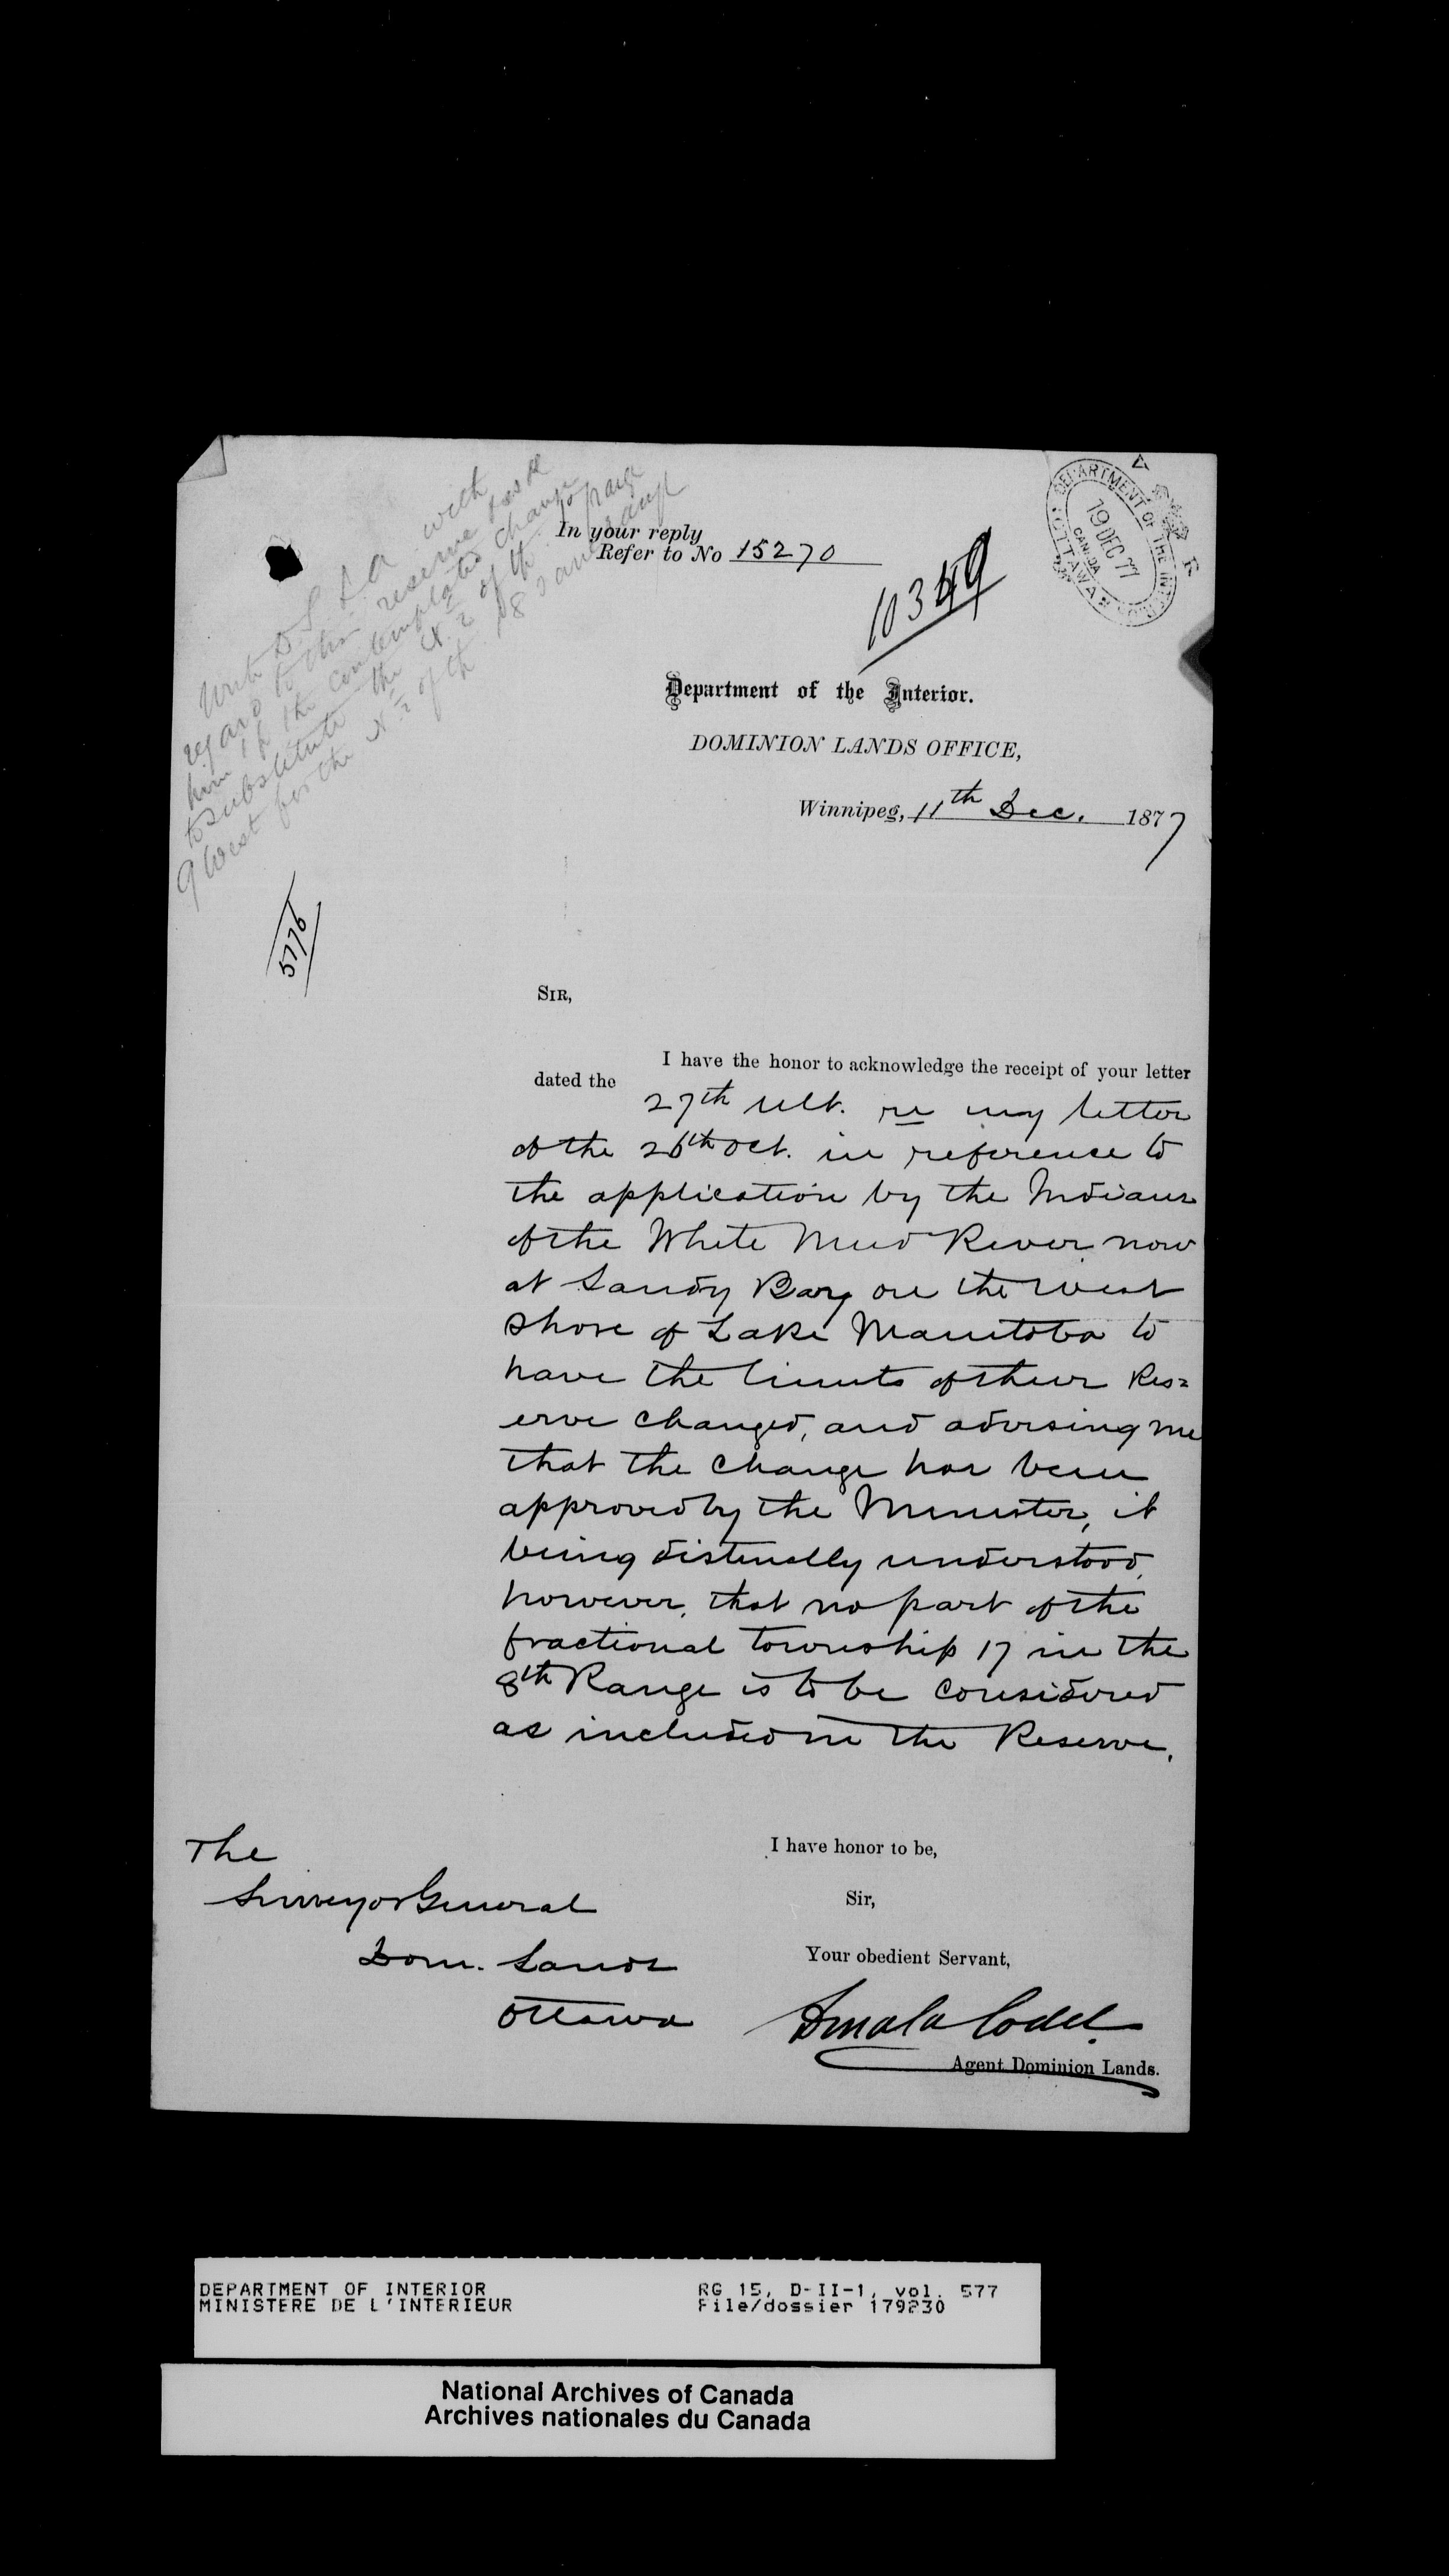 Write D.S.G. with
regard to this reserve & ask
him if the contemplated change
to substitute the N. ½ of tp.
9 West for the N. ½ of tp. 18
In your reply
Refer to No 15270
10349
DEPARTMENT OF THE INTERIOR
19 DEC 77
CANADA
OTTAWA
V R
Department of the Interior.
DOMINION LANDS OFFICE,
Winnipeg, 11th Dec. 1877
5776
SIR,
I have the honor to acknowledge the receipt of your letter
dated the
27th ult. re my letter
of the 26th Oct. in reference to
the application by the Indians
of the White Mud River now
at Sandy Bay on the west
shore of Lake Manitoba to
have the limits of their Res=
erve changed, and advising me
that the change has been
approved by the Minister, it
being distinctly understood,
however, that no part of the
fractional township 17 in the
8th Range is to be considered
as included in the Reserve.
The
Surveyor General
Dom. Lands
Ottawa
I have honor to be,
Sir,
Your obedient Servant,
Codd.
Agent Dominion Lands.
DEPARTMENT OF INTERIOR
MINISTERE DE L'INTERIEUR
RG 15, D-II-1, vol. 577
File/dossier 179230
National Archives of Canada
Archives nationales du Canada